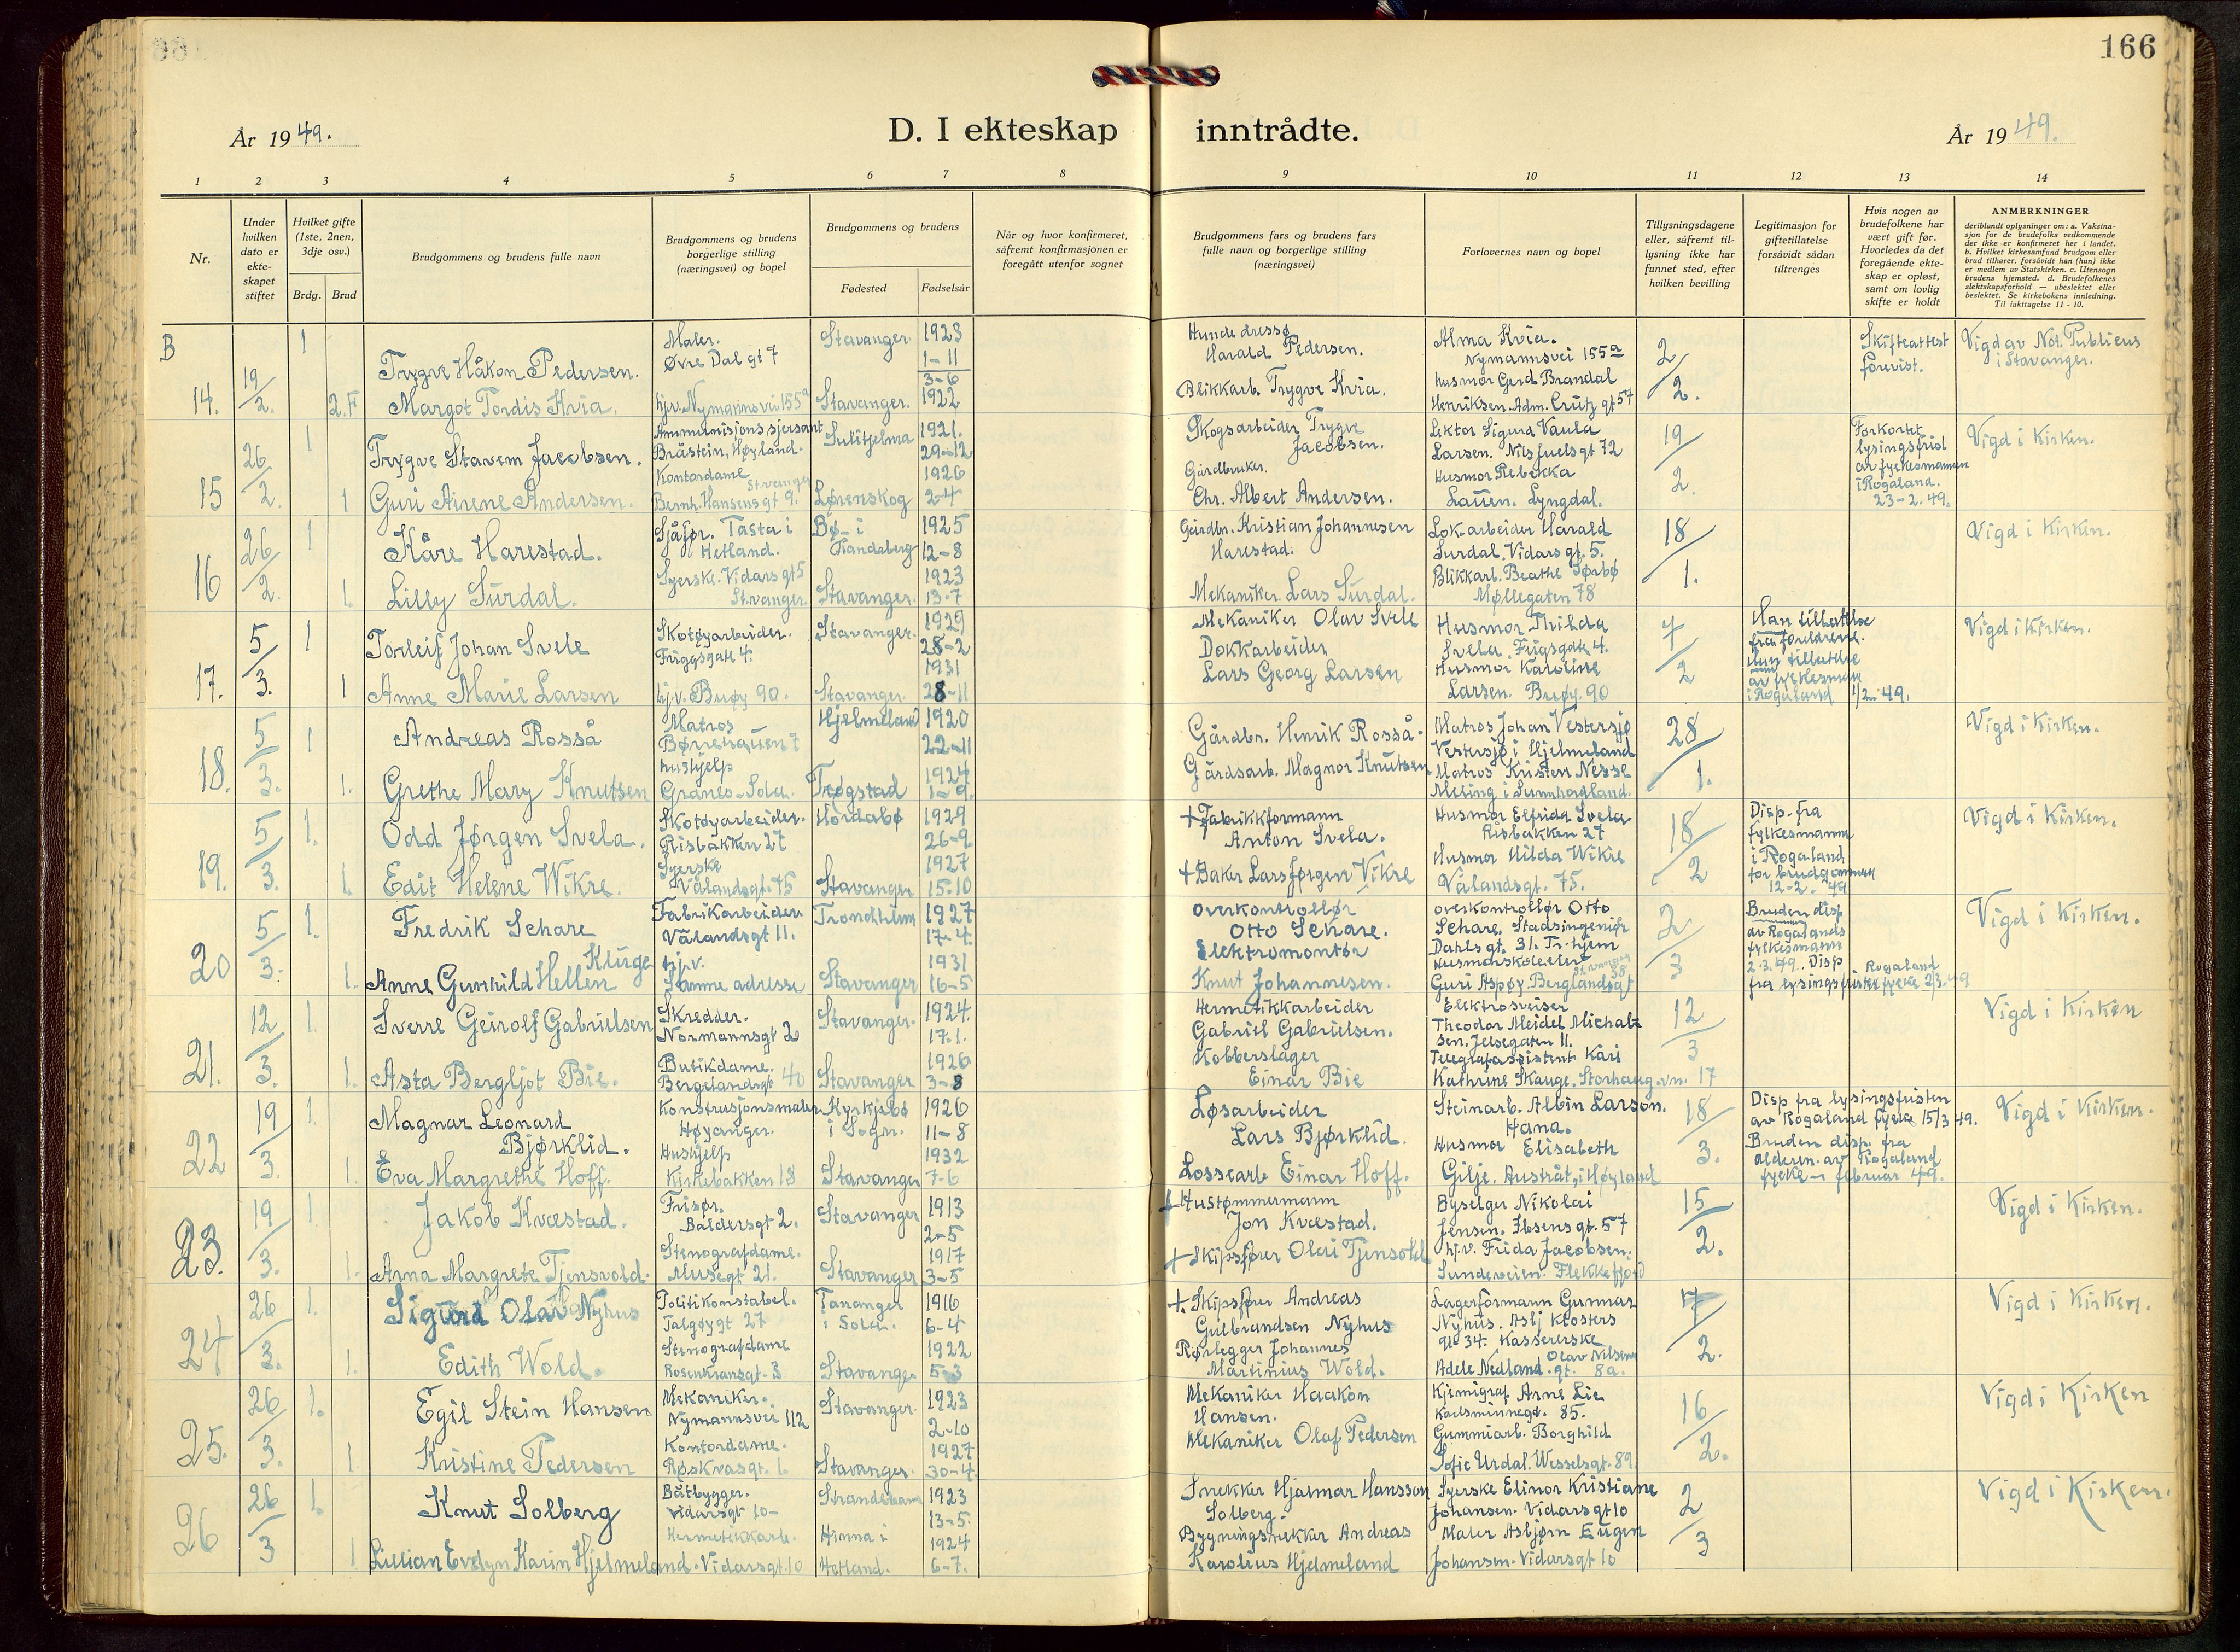 166
År 1949.
D. I ekteskap inntrådte.
År 1949.
1 2 3 4 5 6 7 8 9 10 11 12 13 14
Nr.
Under hvilken dato er ekte-skapet stiftet
Hvilket gifte (1ste, 2nen, 3dje osv.)
Brdg. Brud
Brudgommens og brudens fulle navn
Brudgommens og brudens borgerlige stilling (næringsvei) og bopel
Brudgommens og brudens
Fødested Fødselsår
Når og hvor konfirmeret, såfremt konfirmasjonen er foregått utenfor sognet
Brudgommens fars og brudens fars fulle navn og borgerlige stilling (næringsvei)
Forlovernes navn og bopel
Tillysningsdagene eller, såfremt til-lysning ikke har funnet sted, efter hvilken bevilling
Legitimasjon for giftetillatelse forsåvidt sådan tiltrenges
Hvis nogen av brudefolkene har vært gift før. Hvorledes da det foregående ekte-skap er opløst, samt om lovlig skifte er holdt
ANMERKNINGER
deriblandt oplysninger om: a. Vaksina-sjon for de brudefolks vedkommende der ikke er konfirmeret her i landet. b. Hvilket kirkesamfund brudgom eller brud tilhører, forsåvidt han (hun) ikke er medlem av Statskirken. c. Utensogn brudens hjemsted. d. Brudefolkenes slektskapsforhold — ubeslektet eller beslektet. Se kirkebokens innledning. Til iakttagelse 11 - 10.
B
14. 19/2. 1 Trygve Håkon Pedersen. Maler. Øvre Dal gt 7 Stavanger. 1923 1-11
Harald Pedersen. Alma Kvia. Nymannsvei 155a 2/2. Skifteattest forevist. Vigd av Not. Publicus i Stavanger.
2.F Margot Tordis Kvia. hjv. Nymannsvei 155a Stavanger. 3-6 1922
Blikkarb. Trygve Kvia. husmor Gerd Brandal Henriksen. Adm. Crutz gt 57
15 26/2. 1 Trygve Stavem Jacobsen. Ammunisjonssjersant Bråstein, Høyland. Sulitjelma 1921. 29-12
Skogsarbeider Trygve Jacobsen. Lektor Sigurd Vaula Larsen. Nils Juelsgt 72 19/2. Forkortet lysingsfrist av fylkesmannen i Rogaland. 23-2.49. Vigd i Kirken.
1 Guri Airene Andersen. Kontordame Bernh. Hansens gt 9. Stvanger Lørenskog 1926 2-4
Gårdbruker. Chr. Albert Andersen. Husmor Rebekka Lauen. Lyngdal.
16 26/2. 1 Kåre Harestad. Sjåfør. Tasta i Hetland. Bø i Randaberg 1925 12-8
Gårdbr. Kristian Johannesen Harestad. Lok.arbeider Harald Surdal. Vidarsgt. 5. 18/1. Vigd i Kirken.
1. Lilly Surdal. Syerske. Vidarsgt 5 Stvanger. Stavanger. 1923 13-7
Mekaniker Lars Surdal. Blikkarb. Beathe Sørbø Møllegaten 78
17. 5/3. 1 Torleif Johan Svele Skotøyarbeider. Friggsgate 4. Stavanger. 1929 28-2
Mekaniker Olav Svele Husmor Thilda Svela. Frigsgate 4. 7/2 Han tillattelse fra foreldrene. Hun tillattelse av fylkesmann i Rogaland 1/2-49. Vigd i Kirken.
1 Anne Marie Larsen hj.v. Buøy 90. Stavanger. 1931 28-11
Dokkarbeider Lars Georg Larsen Husmor Karoline Larsen. Buøy. 90
18. 5/3. 1 Andreas Rosså Matros Børehauen 7 Hjelmeland 1920 22-11
Gårdbr. Henrik Rosså. Matros Johan Vestersjø Vestersjø i Hjelmeland 28/1. Vigd i Kirken.
1. Grethe Mary Knutsen hushjelp Granes-Sola. Trøgstad 1924 1-9.
Gårdsarb. Magnor Knutsen Matros Kristen Nesse
19. 5/3. 1. Odd Jørgen Svela. Skotøyarbeider. Risbakken 27 Hordabø 1929 26-9
+ Fabrikkformann Anton Svela. Husmor Elfrida Svela Risbakken 27 18/2 Disp. fra fylkesmannen i Rogaland for brudgommen 12-2.-49 Vigd i Kirken.
1. Edit Helene Wikre. Syerske Vålandsgt. 75 Stavanger 1927 15-10
+ Baker Lars Jørgen Vikre Husmor Hilda Wikre Vålandsgt. 75.
20 5/3. 1. Fredrik Schare Fabrikarbeider. Vålandsgt 11. Trondheim 1927 17-4.
Overkontrollør Otto Schare. overkontrollør Otto Schare. Stadsingeniør Dahls gt. 31. Tr.hjem 2/3 Bruden disp. av Rogalands fylkesmann 2-3.49. Disp fra lysingsfristen Rogaland fylke 2/3.49 Vigd i Kirken.
1. Anne Gunhild Hellen Kluge hj.v. Samme adresse Stavanger 1931 16-5
Elektromontør Knut Johannesen. Guri Aspøy. Berglandsgt 38 Stavanger
21. 12/3. 1. Sverre Geirolf Gabrielsen Skredder. Normannsgt 20 Stavanger. 1924. 17.1.
Hermetikkarbeider Gabriel Gabrielsen. Elektrosveiser Theodor Meidel Michalsen. Jelsegaten 11. 12/3 Vigd i Kirken
1. Asta Bergljot Bie. Butikdame. Bergelandsgt 40 Stavanger 1926 3-8
Kobberslager Einar Bie Telegrafassistent Kari Kathrine Skauge. Storhaug.vn. 17
22 19/3. 1. Magnar Leonard Bjørklid. Høyanger. Kyrkjebø i Sogn. 1926 11-8
Løsarbeider Lars Bjørklid. Steinarb. Albin Larson. Hana. 18/3. Disp fra lysingsfristen av Rogaland fylke 15/3 49. Bruden disp. fra alderen. av Rogaland fylke - februar 49. Vigd i Kirken.
1. Eva Margrethe Hoff. Hushjelp Kirkebakken 13 Stavanger 1932 7-6
Lossearb Einar Hoff. Husmor Elisabeth Gilje. Austråt, i Høyland
23. 19/3. 1. Jakob Kvæstad. Frisør. Baldersgt 2. Stavanger 1913 2-5
+ Hustømmermann Jon Kvæstad. Byselger Nikolai Jensen. Ibsensgt. 57 15/2. Vigd i Kirken.
1. Anna Margrete Tjensvold. Stenografdame. Musegt 21. Stavanger 1917 3-5
+ Skipsfører Olai Tjensvold hj.v. Frida Jacobsen. Sundeveien. Flekkefjord
24 26/3. 1. Sigurd Olav Nyhus Politikonstabel. Talgøygt 27 Tananger i Sola. 1916 6-4
+ Skipsfører Andreas Gulbrandsen Nyhus Lagerformann Gunnar Nyhus. Aslj Klosters gt 34. 17/2. Vigd i Kirken.
1. Edith Wold. Stenografdame Rosenkransgt. 3 Stavanger 1922 5-3
Rørlegger Johannes Martinius Wold. Kassererske Adele Nedland. Olav Nilsens gt. 8a.
25. 26/3. 1. Egil Stein Hansen Mekaniker. Nymannsvei 112 Stavanger. 1923 2-10
Mekaniker Haakon Hansen. Kjemigraf Arne Lie Karlsminnegt. 85. 16/2. Vigd i Kirken
1. Kristine Pedersen Kontordame. Røskvasgt. 1. Stavanger. 1927 30-4
Mekaniker Olaf Pedersen Gummiarb. Borghild Sofie Urdal. Wesselsgt. 89.
26 26/3 1. Knut Solberg Båtbygger. Vidarsgt 10- 1923 13-5.
Snekker Hjalmar Hansson Solberg. Syerske Elinor Kristiane Johansen. Vidarsgt 10 2/3 Vigd i Kirken.
1 Lillian Evelyn Karin Hjelmeland. Hermetikkarb. Vidarsgt. 10 Hinna i Hetland. 1924 6-7.
Bygningssnekker Andreas Karolius Hjelmeland Maler Asbjørn Eugen Johansen. Vidarsgt 10